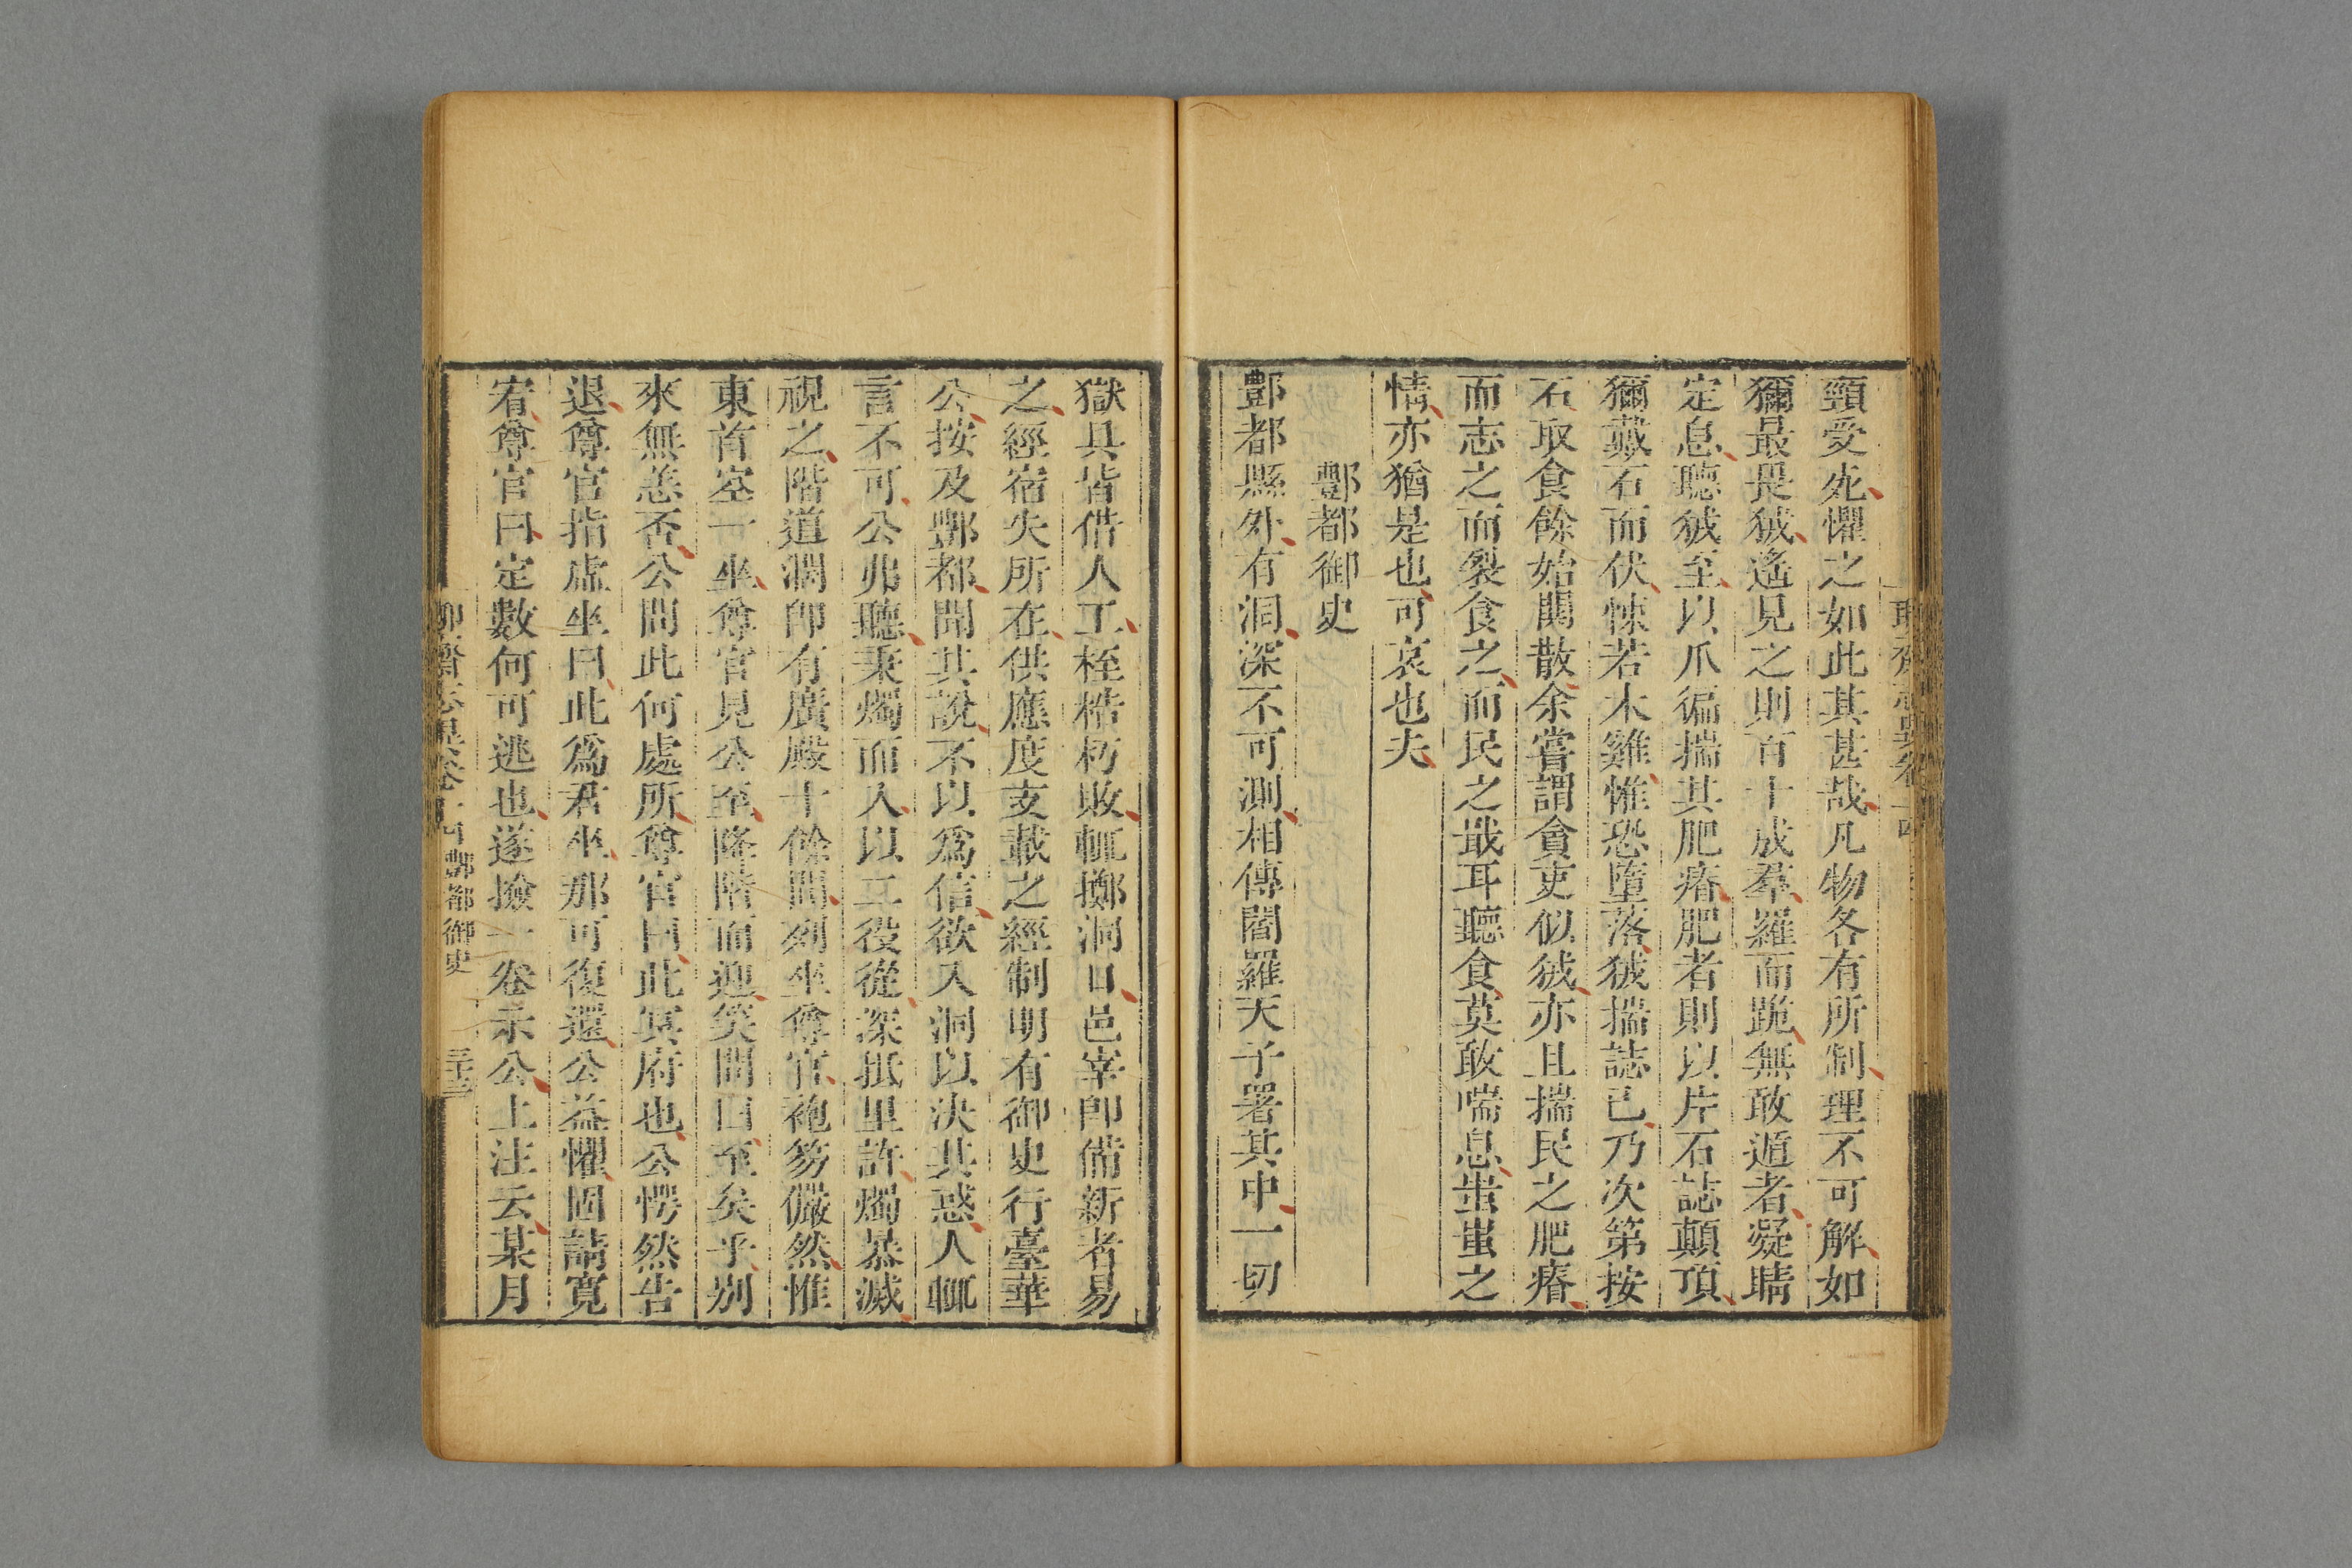 頸受死懼之如此其甚哉凡物各有所制理不可解如
獮最畏狨遙見之則百十成羣羅而跪無敢遁者凝睛
定息聽狨至以爪徧揣其肥瘠肥者則以片石誌顛頂
獮戴石而伏悚若木雞惟恐墮落狨揣誌已乃次第按
石取食餘始鬨散余嘗謂貪吏似狨亦且揣民之肥瘠
而志之而裂食之而民之戢耳聽食莫敢喘息蚩蚩之
情亦猶是也可哀也夫
酆都御史
酆都縣外有洞深不可測相傳閻羅天子署其中一切
獄具皆借人工桎梏朽敗輒擲洞口邑宰卽備新者易
之經宿失所在供應度支載之經制明有御史行臺華
公按及酆都聞其說不以爲信欲入洞以決其惑人輒
言不可公弗聽秉燭而入以二役從深抵里許燭暴滅
視之階道濶卽有廣殿十餘間列坐尊官袍笏儼然惟
東首空一坐尊官見公至降階而迎笑問曰至矣乎別
來無恙否公問此何處所尊官曰此冥府也公愕然告
退尊官指虛坐曰此爲君坐那可復還公益懼固請寬
宥尊官曰定數何可逃也遂撿一卷示公上注云某月
聊齋志異卷十四 酆都御史 三十三